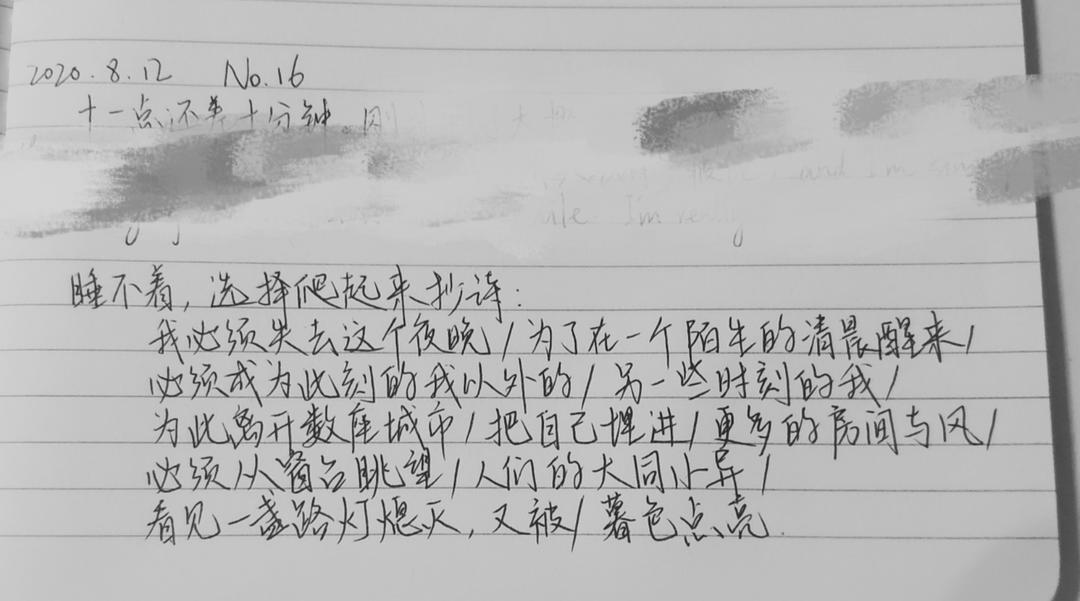 2020.8.12 No.16
十一点还差十分钟。刚
and I'm
I'm really
睡不着，选择爬起来抄诗：
我必须失去这个夜晚/为了在一个陌生的清晨醒来/
必须成为此刻的我以外的/另一些时刻的我/
为此离开数座城市/把自己埋进/更多的房间与风/
必须从窗台眺望/人们的大同小异/
看见一盏路灯熄灭，又被/暮色点亮.